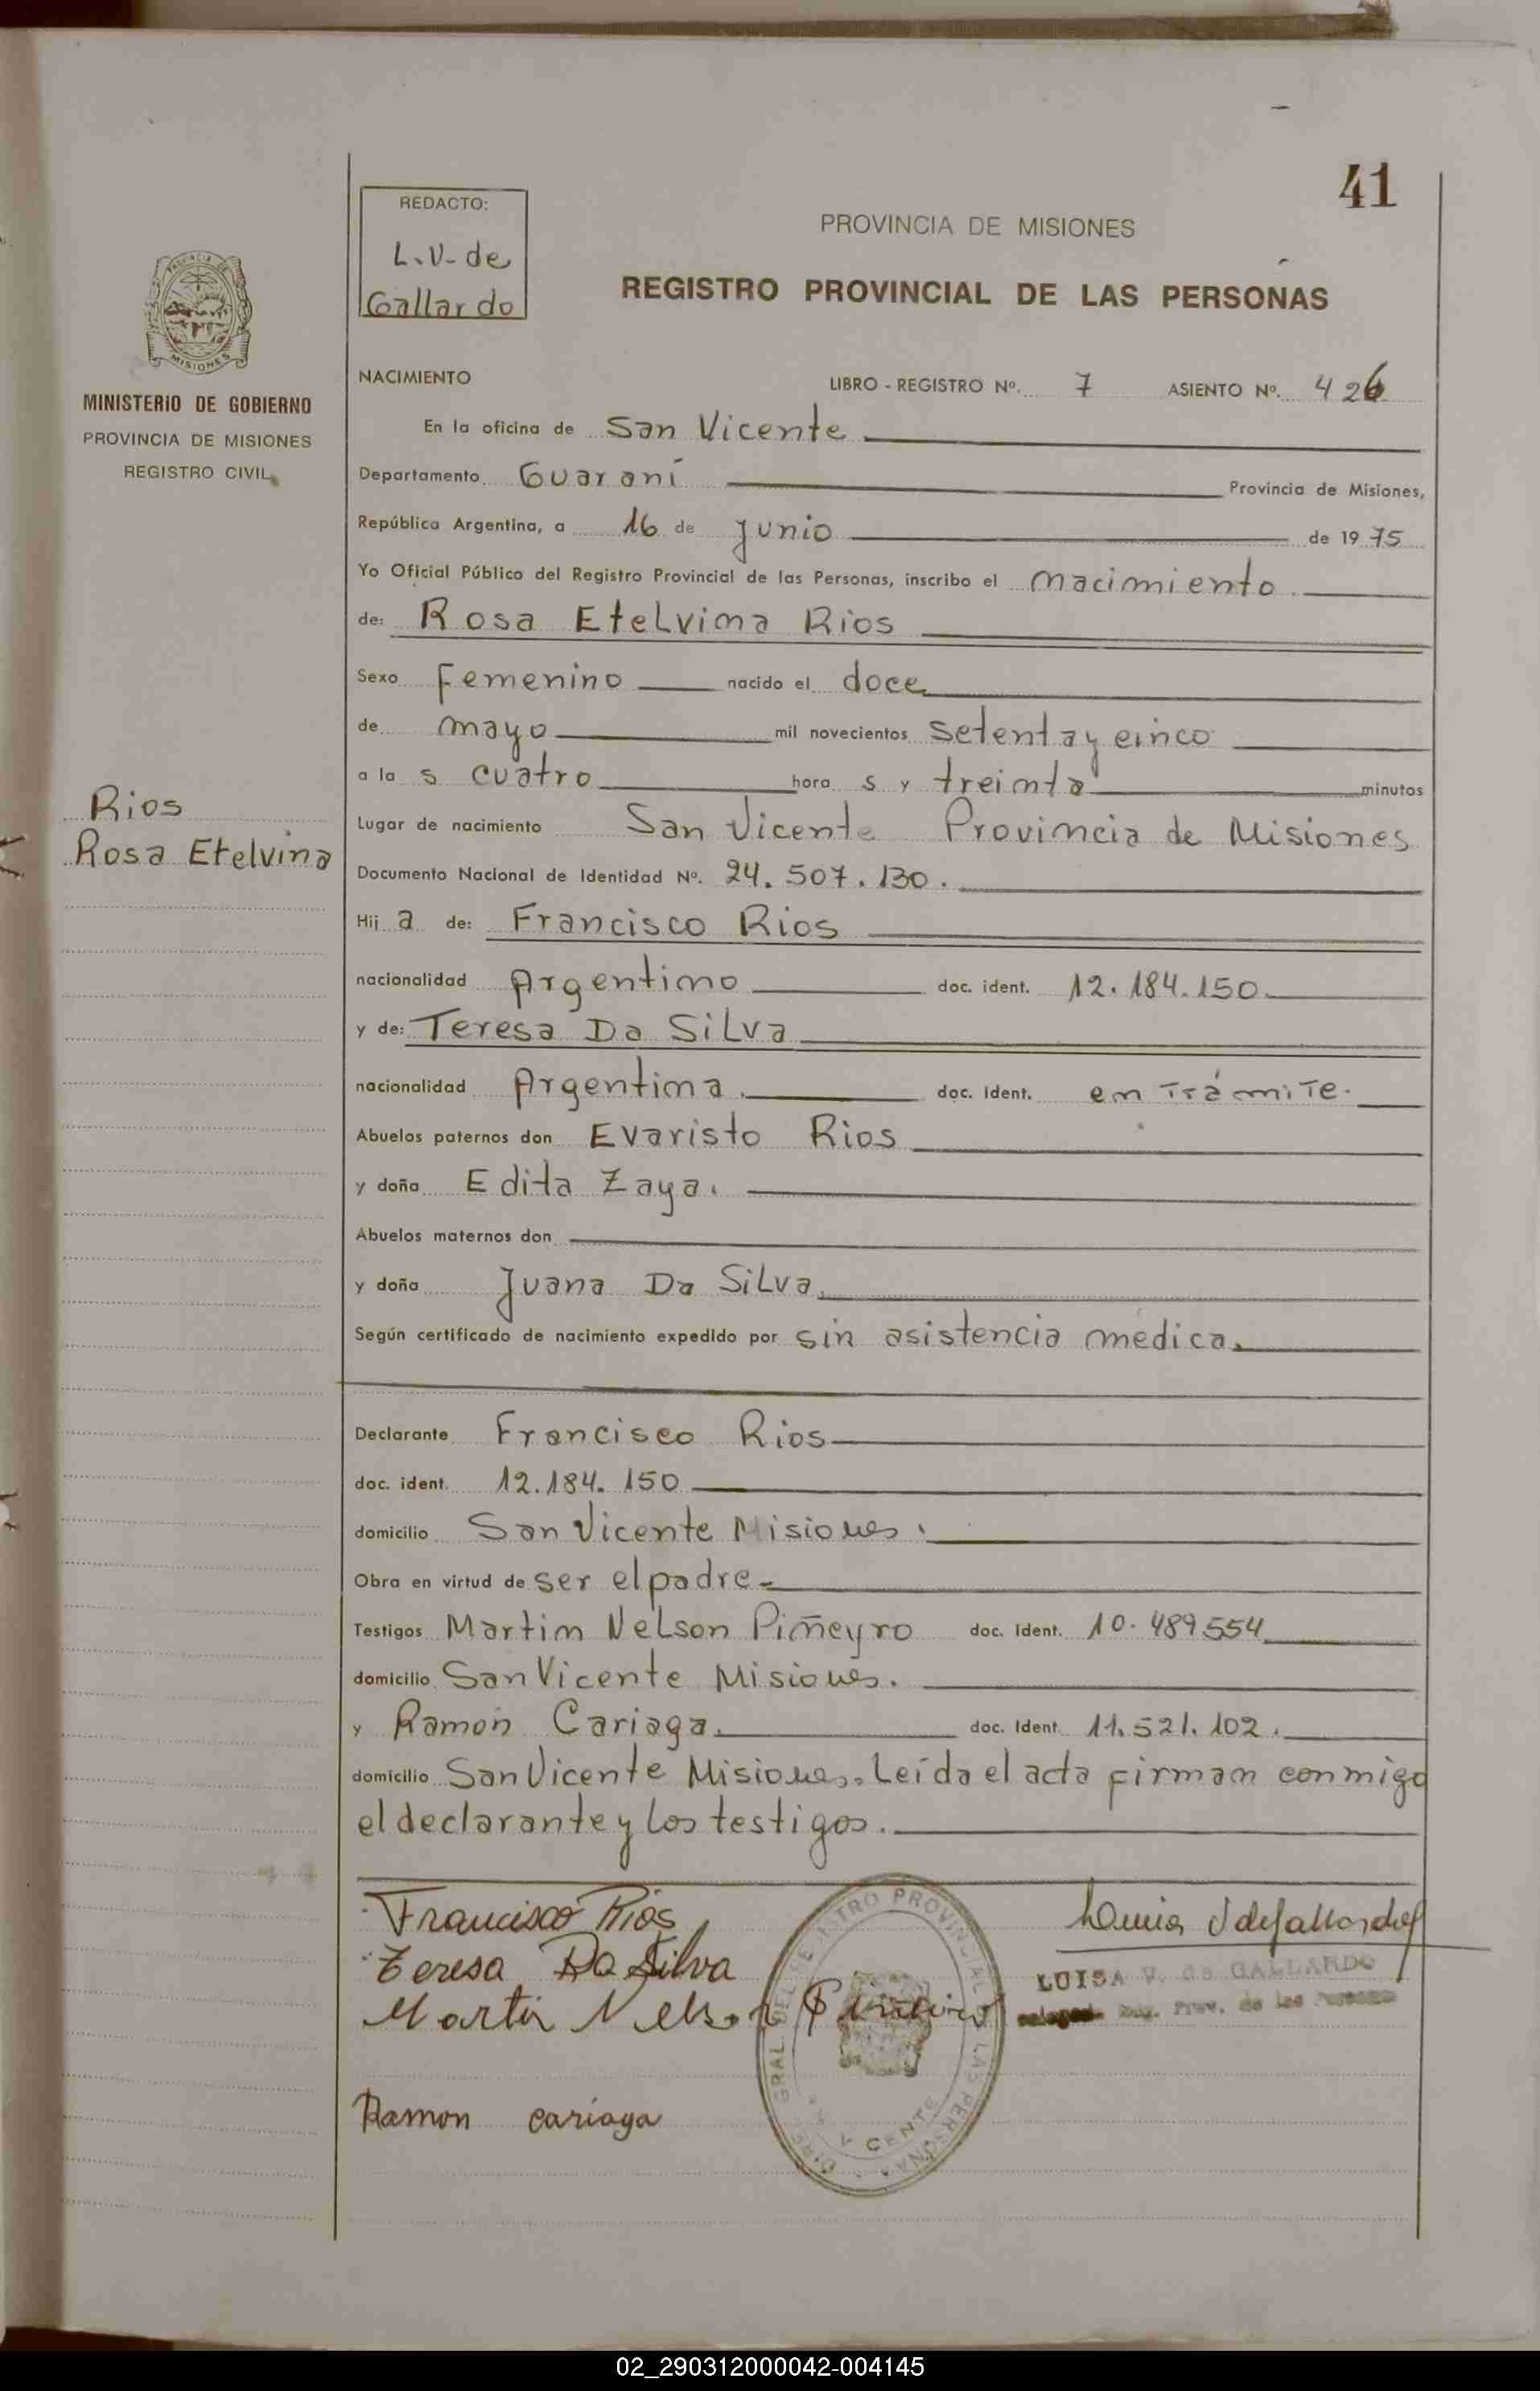 41
REDACTO:
L.V. de
Gallardo
PROVINCIA DE MISIONES
REGISTRO PROVINCIAL DE LAS PERSONAS
MISIONES
MINISTERIO DE GOBIERNO
PROVINCIA DE MISIONES
REGISTRO CIVIL
NACIMIENTO LIBRO - REGISTRO Nº. 7 ASIENTO Nº. 426
En la oficina de San Vicente
Departamento Guaraní Provincia de Misiones,
República Argentina, a 16 de Junio de 1975
Yo Oficial Público del Registro Provincial de las Personas, inscribo el nacimiento
de: Rosa Etelvina Rios
Sexo Femenino nacido el doce
de mayo mil novecientos setenta y cinco
a la s cuatro hora s y treinta minutos
Rios
Rosa Etelvina
Lugar de nacimiento San Vicente Provincia de Misiones
Documento Nacional de Identidad Nº. 24.507.130.
Hij a de: Francisco Rios
nacionalidad Argentino doc. ident. 12.184.150
y de: Teresa Da Silva
nacionalidad Argentina. doc. Ident. en Trámite.
Abuelos paternos don Evaristo Rios
y doña Edita Zaya.
Abuelos maternos don
y doña Juana Da Silva.
Según certificado de nacimiento expedido por sin asistencia médica.
Declarante Francisco Rios
doc. ident. 12.184.150
domicilio San Vicente Misiones.
Obra en virtud de ser el padre.
Testigos Martin Nelson Piñeyro doc. Ident. 10.489.554
domicilio San Vicente Misiones.
y Ramón Cariaga. doc. Ident. 11.521.102.
domicilio San Vicente Misiones. Leída el acta firman conmigo
el declarante y los testigos.
Francisco Rios
Teresa Da Silva
Martin Nelson Piñeiro
Ramon cariaga
LUISA V. de GALLARDO
Reg. Prov. de las Personas
02_290312000042-004145